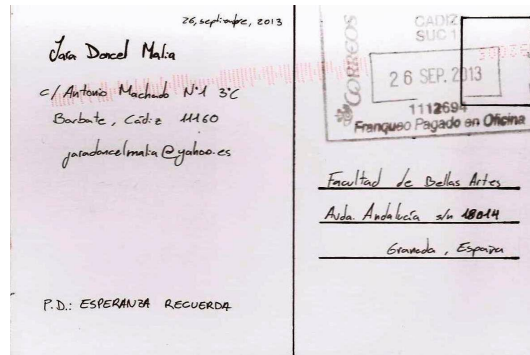 26, septiembre, 2013
Jara Doncel Malia
c/ Antonio Machado Nº1 3ºC
Barbate, Cádiz 11160
jaradoncelmalia@yahoo.es
P.D.: ESPERANZA RECUERDA
CORREOS
CADIZ
SUC 1
26 SEP. 2013
1112694
Franqueo Pagado en Oficina
Facultad de Bellas Artes
Avda. Andalucía s/n 18014
Granada, España